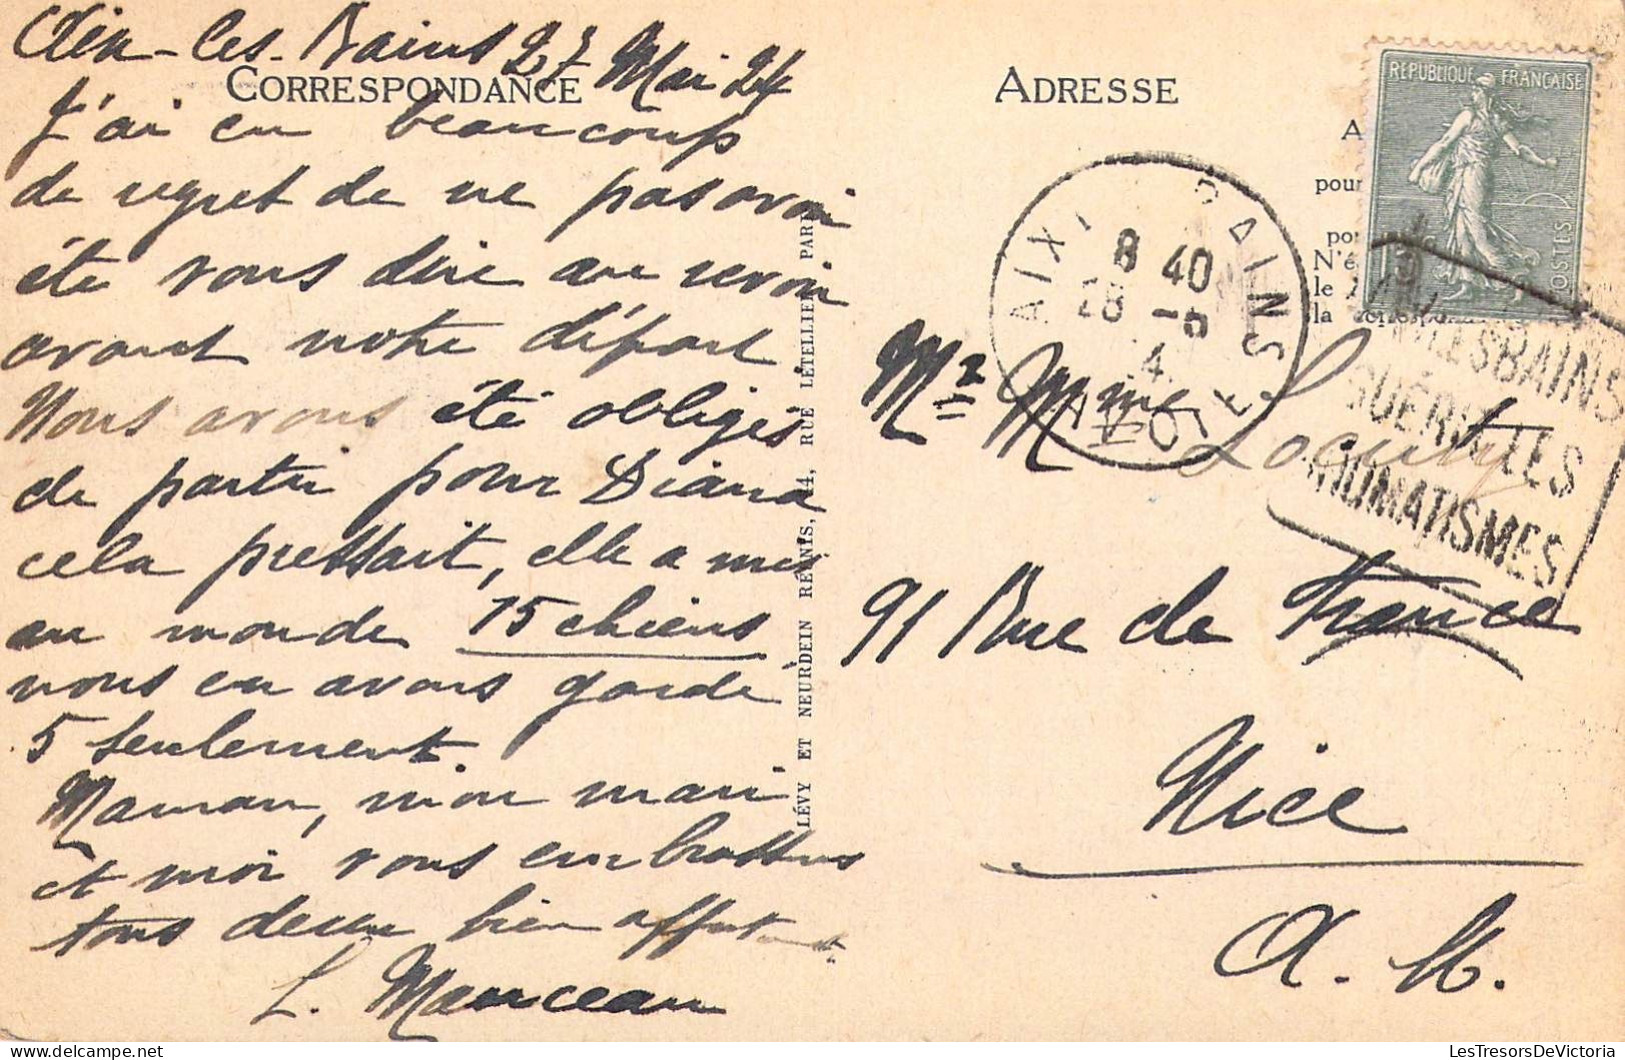 Aix-les-Bains 27 Mai 24
CORRESPONDANCE
J'ai eu beaucoup
de regret de ne pas avoir
été vous dire au revoir
avant notre départ
Nous avons été obligés
de partir pour Diana
cela pressait, elle a mis
au monde 15 chiens
nous en avons gardé
5 seulement.
Maman, mon mari
et moi vous embrassons
tous deux bien affect
L. Manceau
LÉVY ET NEURDEIN RÉUNIS, 44, RUE LETELLIER, PARIS
ADRESSE
REPUBLIQUE FRANÇAISE
POSTES
A
pour
pou
N'é
le
la correspon
AIX BAINS
8 40
28 -5
4
SAVOIE
LES BAINS
GUÉRIT LES
RHUMATISMES
Mr Mme
91 Rue de France
Nice
A. M.
LesTresorsDeVictoria.com